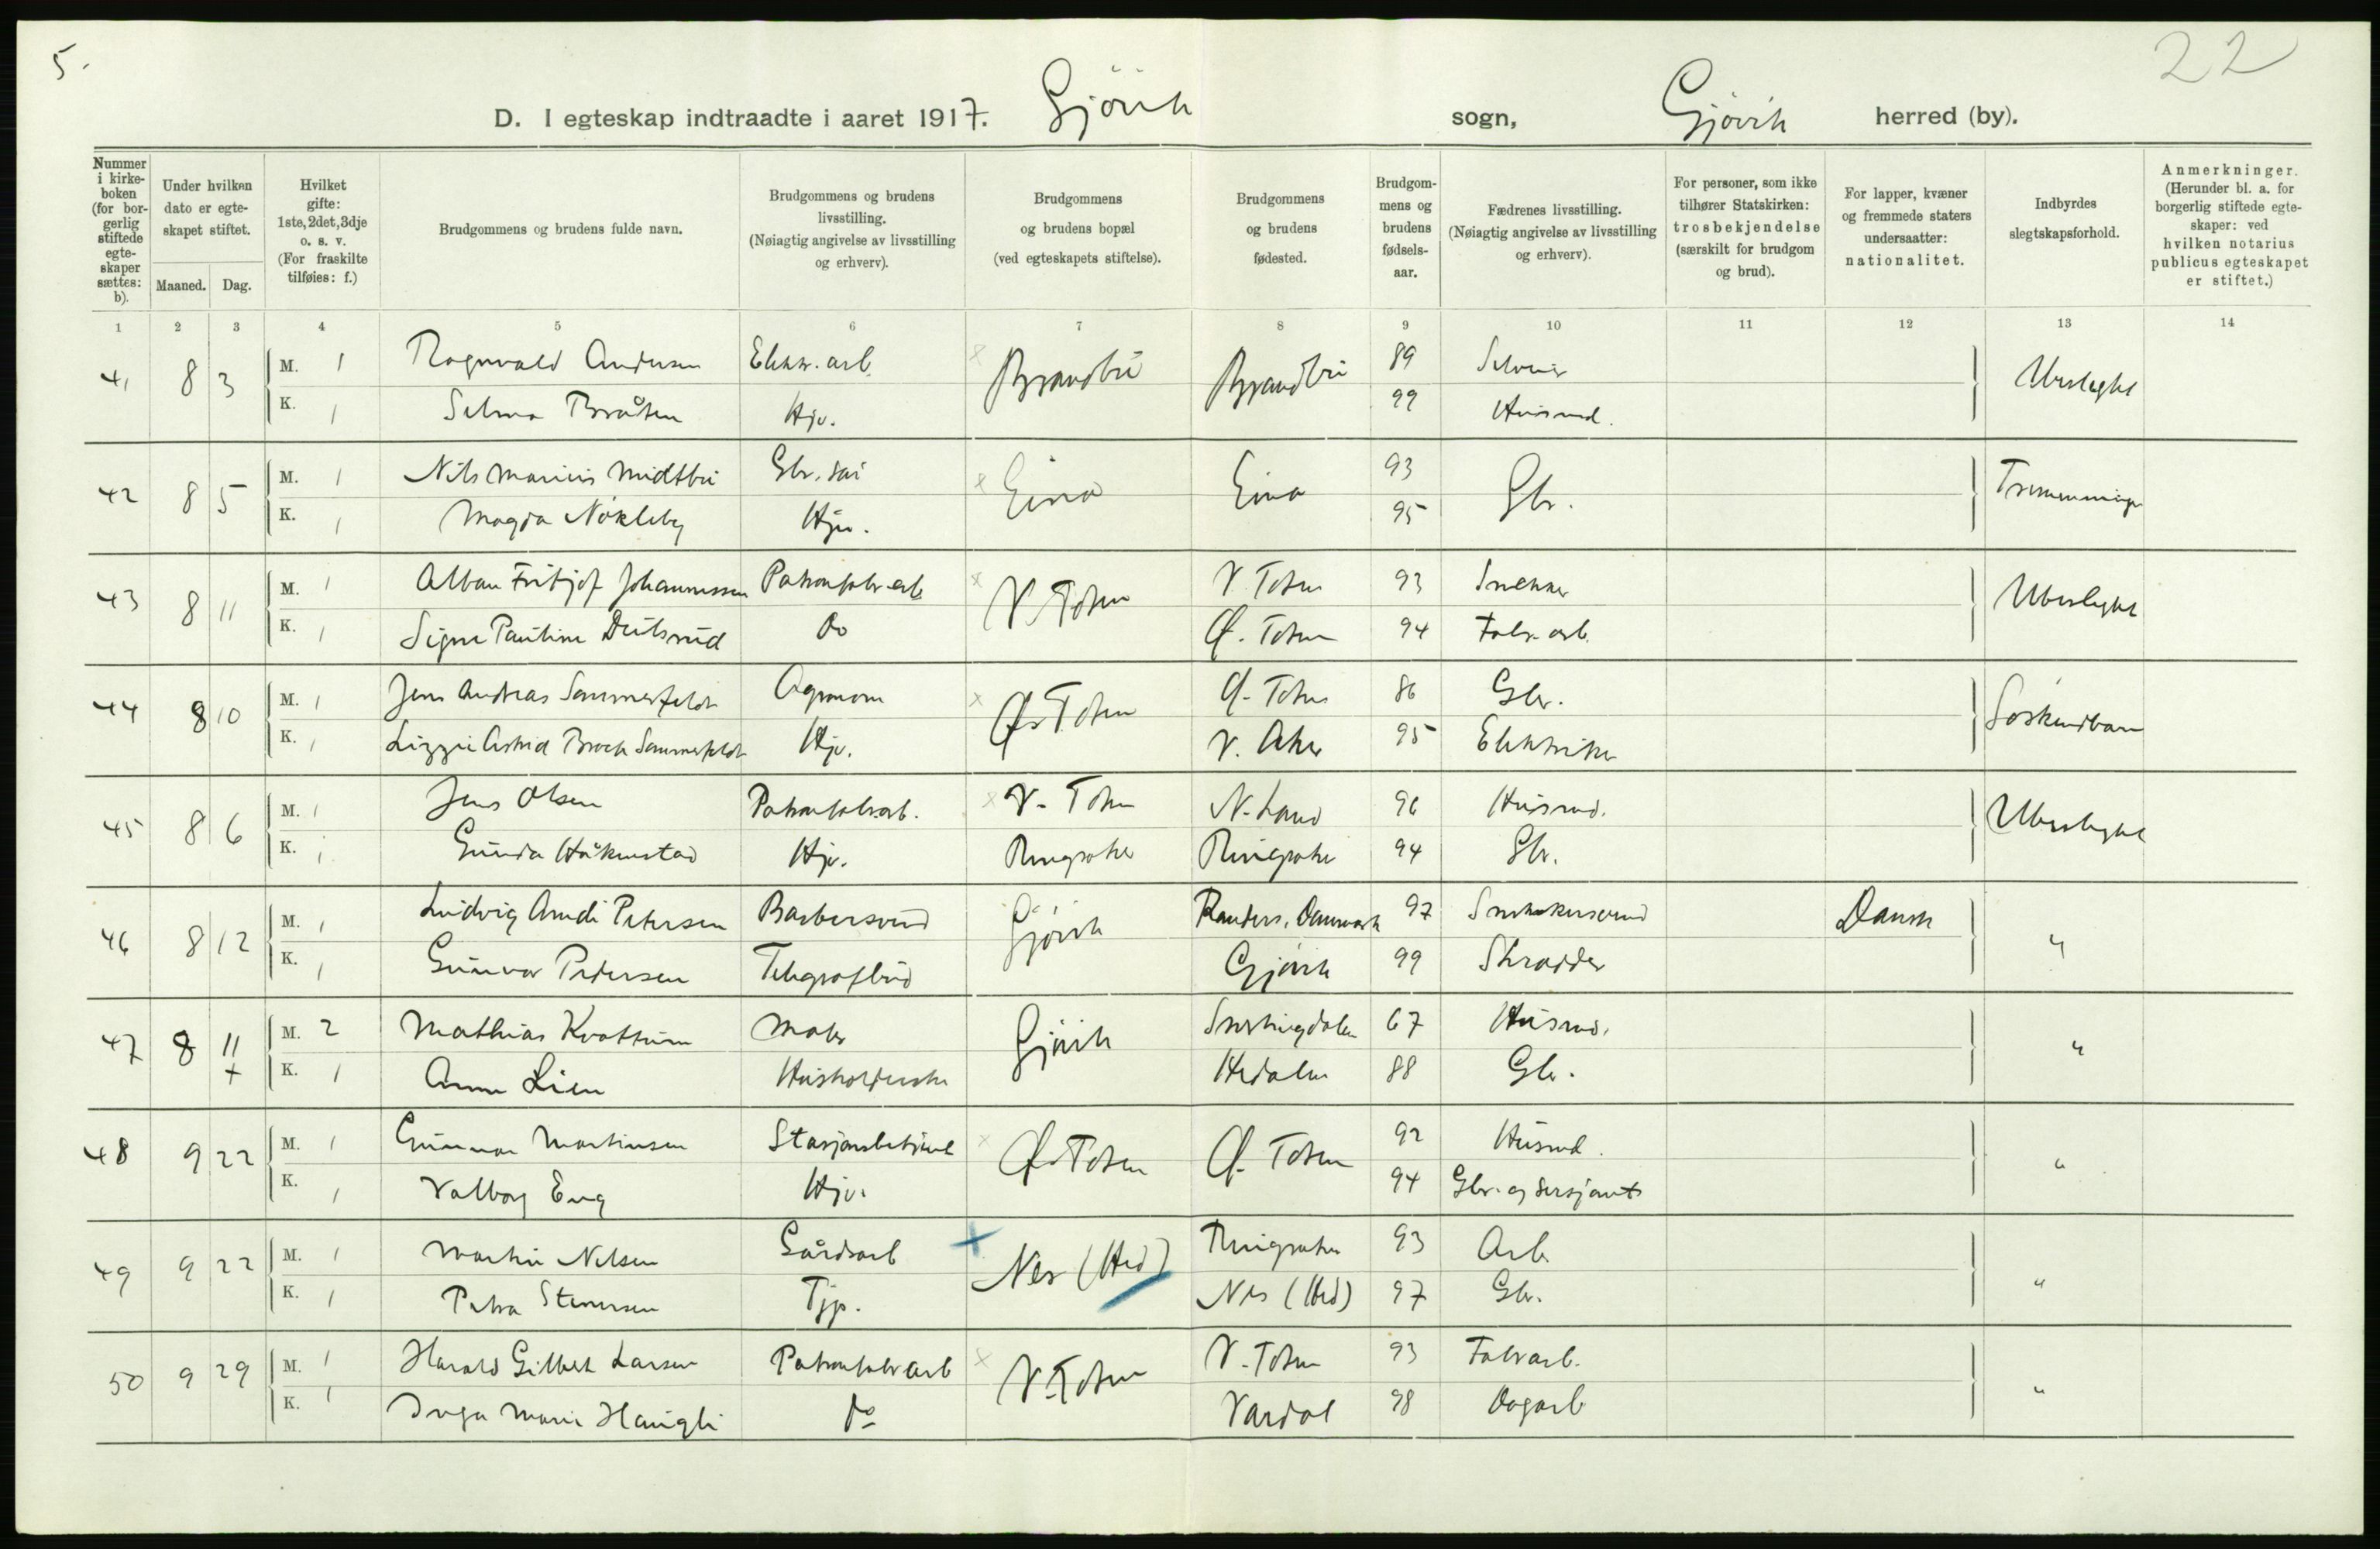 5.
22
D. I egteskap indtraadte i aaret 1917. Gjövik sogn, Gjövik herred (by).
Nummer i kirke-boken (for bor-gerlig stiftede egte-skaper sættes: b).
Under hvilken dato er egte-skapet stiftet.
Maaned. Dag.
Hvilket gifte: 1ste, 2det, 3dje o. s. v. (For fraskilte tilføies: f.)
Brudgommens og brudens fulde navn.
Brudgommens og brudens livsstilling. (Nøiagtig angivelse av livsstilling og erhverv).
Brudgommens og brudens bopæl (ved egteskapets stiftelse).
Brudgommens og brudens fødested.
Brudgom-mens og brudens fødsels-aar.
Fædrenes livsstilling. (Nøiagtig angivelse av livsstilling og erhverv).
For personer, som ikke tilhører Statskirken: trosbekjendelse (særskilt for brudgom og brud).
For lapper, kvæner og fremmede staters undersaatter: nationalitet.
Indbyrdes slegtskapsforhold.
Anmerkninger. (Herunder bl. a. for borgerlig stiftede egte-skaper: ved hvilken notarius publicus egteskapet er stiftet.)
1 2 3 4 5 6 7 8 9 10 11 12 13 14
41 8 3 M. 1 Ragnvald Andersen Elektr. arb. Brandbu Brandbu 89 Ubeslegtet
K. 1 Selma Bråten Hjv. 99 Husmd.
42 8 5 M. 1 Nils Marius Midtbu Gbr. søn Eina Eina 93 Gbr. Tremenninger
K. 1 Magda Nökleby Hjv. 95
43 8 11 M. 1 Alban Fritjof Johannessen Patronfabr. arb V. Toten V. Toten 93 Snekker Ubeslegtet
K. 1 Signe Pauline Do Ø. Toten 94 Fabr. arb.
44 8 10 M. 1 Jens Andreas Sommerfeldt Agronom Ø. Toten Ø. Toten 86 Gbr. Söskendbarn
K. 1 Lizzie Astrid Broch Sommerfeldt Hjv. V. Aker 95 Elektriker
45 8 6 M. 1 Jens Olsen Patronfabr. arb. V. Toten N. Land 96 Husmd. Ubeslegtet
K. 1 Gunda Håkenstad Hjv. Ringsaker Ringsaker 94 Gbr.
46 8 12 M. 1 Ludvig Arndi Petersen Barbersvend Gjövik Randers, Danmark 97 Snekkersvend Dansk "
K. 1 Gunvor Pedersen Telegrafbud Gjövik 99 Skrædder
47 8 11 M. 2 Mathias Kvattum Maler Gjövik Snertingdalen 67 Husmd. "
+ K. 1 Anne Lien Husholderske Hedalen 88 Gbr.
48 9 22 M. 1 Gunnar Martinsen Stasjonsbetjent Ø. Toten Ø. Toten 92 Husmd. "
K. 1 Valborg Eng Hjv. 94 Gbr. og sersjant
49 9 22 M. 1 Martin Nilsen Gårdsarb Nes (Hed) Ringsaker 93 Arb. "
K. 1 Petra Stenersen Tjp. Nes (Hed) 97 Gbr.
50 9 29 M. 1 Harald Gilbert Larsen Patronfabr arb V. Toten V. Toten 93 Fabr arb. "
K. 1 Inga Marie Haugli do Vardal 98 Dagarb